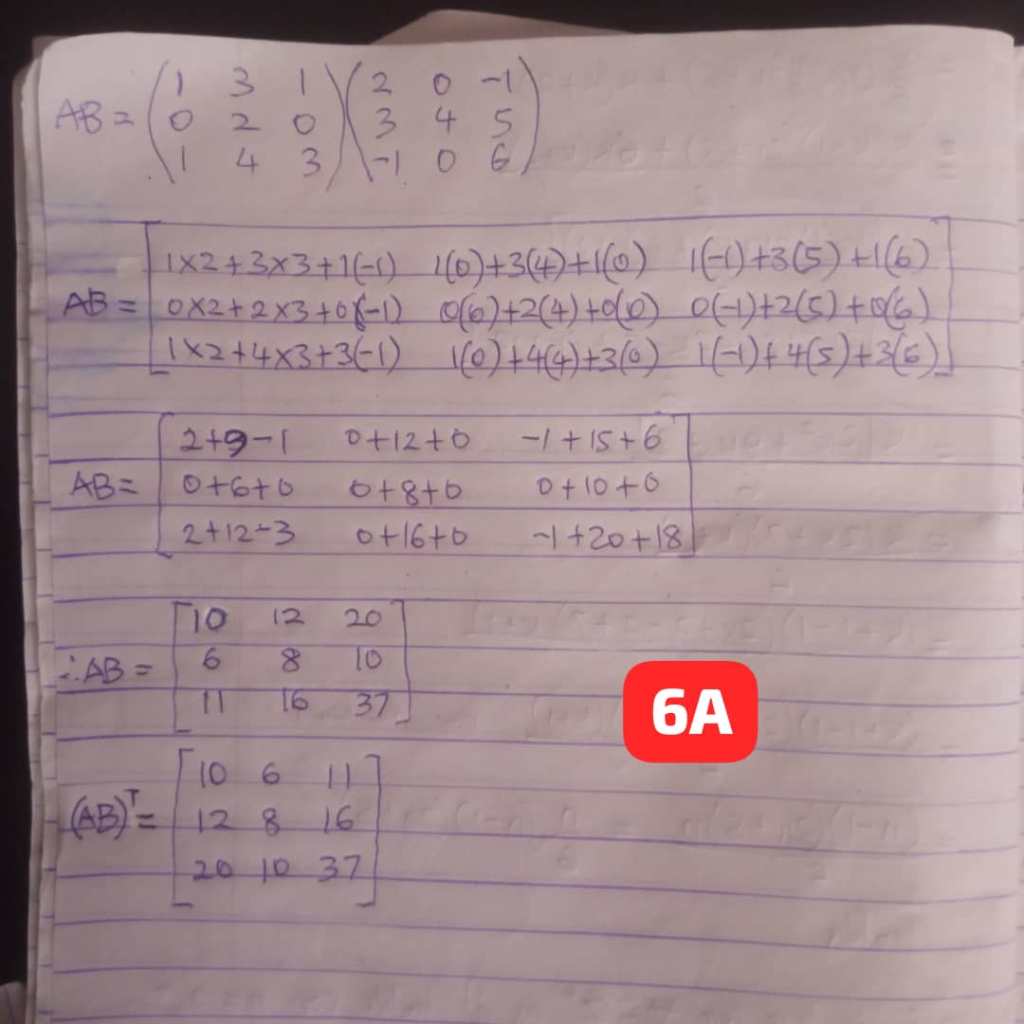 AB = (1 3 1) (2 0 -1)
(0 2 0) (3 4 5)
(1 4 3) (-1 0 6)
AB = [1×2+3×3+1(-1) 1(0)+3(4)+1(0) 1(-1)+3(5)+1(6)]
[0×2+2×3+0(-1) 0(0)+2(4)+0(0) 0(-1)+2(5)+0(6)]
[1×2+4×3+3(-1) 1(0)+4(4)+3(0) 1(-1)+4(5)+3(6)]
AB = [2+9-1 0+12+0 -1+15+6]
[0+6+0 0+8+0 0+10+0]
[2+12-3 0+16+0 -1+20+18]
∴ AB = [10 12 20]
[6 8 10]
[11 16 37]
6A
(AB)ᵀ = [10 6 11]
[12 8 16]
[20 10 37]